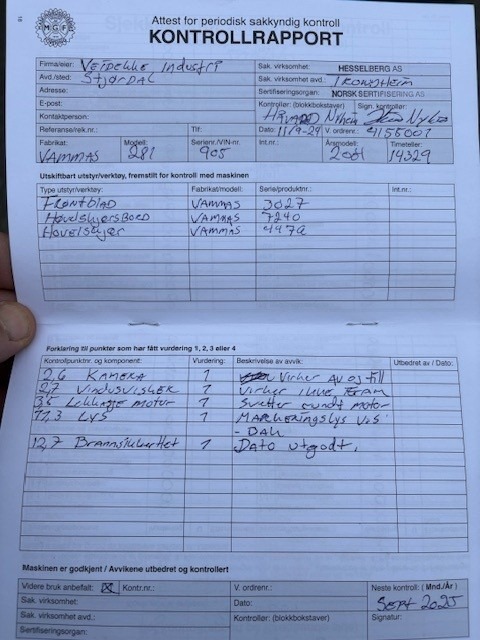 MGF
Attest for periodisk sakkyndig kontroll
KONTROLLRAPPORT
Firma/eier: Veidekke Industri Sak. virksomhet: HESSELBERG AS
Avd./sted: Stjørdal Sak. virksomhet avd.: TRONDHEIM
Adresse: Sertifiseringsorgan: NORSK SERTIFISERING AS
E-post: Kontrollør: (blokkbokstaver) Sign. kontrollør:
Kontaktperson: HÅVARD
Referanse/rek.nr.: Tlf: Dato: 11/9-24 V. ordrenr.: 4155001
Fabrikat: Modell: Serienr./VIN-nr. Int.nr.: Årsmodell: Timeteller:
VAMMAS 281 905 2001 14329
Utskiftbart utstyr/verktøy, fremstilt for kontroll med maskinen
Type utstyr/verktøy: Fabrikat/modell: Serie/produktnr.: Int.nr.:
FRONTBLAD VAMMAS 3027
HøvelskjærsBORD VAMMAS 7240
Høvelskjær VAMMAS
Forklaring til punkter som har fått vurdering 1, 2, 3 eller 4
Kontrollpunktnr. og komponent: Vurdering: Beskrivelse av avvik: Utbedret av / Dato:
2,6 KAMERA 1 Virker AV og till
2,7 Vindusvisker 1 virker ikke, FRAM
3,5 Lekkasje motor 1 Svetter rundt motor
11,3 LYS 1 MARKERINGSlys V.S
- BAK
12,7 Brannsikkerhet 1 Dato utgådt.
Maskinen er godkjent / Avvikene utbedret og kontrollert
Videre bruk anbefalt: X Kontr.nr.: V. ordrenr.: Neste kontroll: (Mnd./År)
Sak. virksomhet: Dato: SEPT 2025
Sak. virksomhet avd.: Kontrollør: (blokkbokstaver) Signatur:
Sertifiseringsorgan: